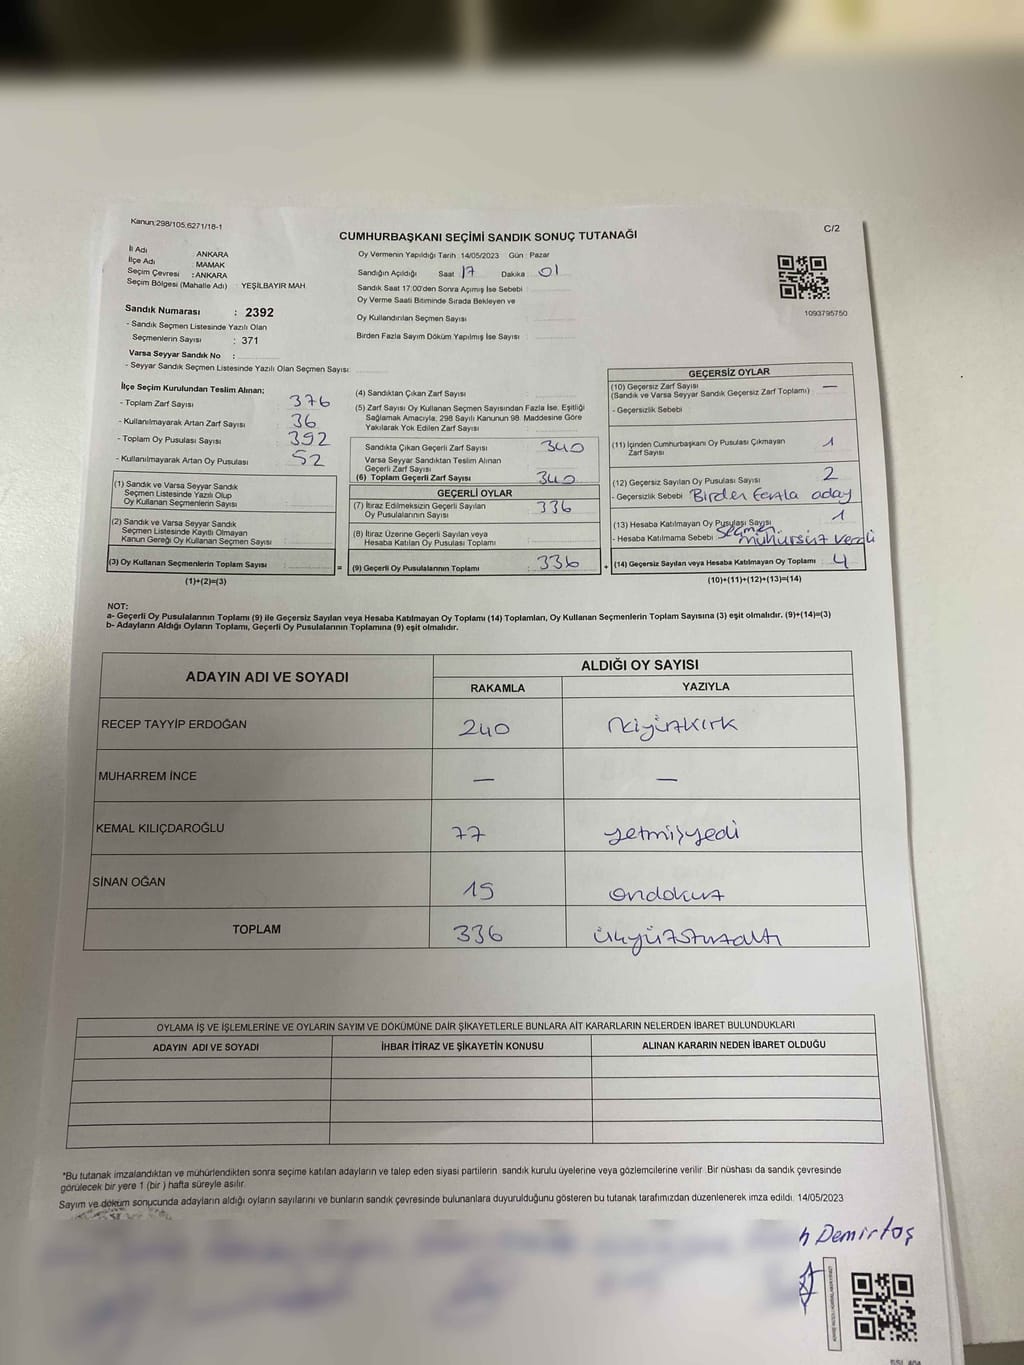 Kanun:298/105;6271/18-1
C/2
CUMHURBAŞKANI SEÇİMİ SANDIK SONUÇ TUTANAĞI
İl Adı : ANKARA
İlçe Adı : MAMAK
Seçim Çevresi : ANKARA
Seçim Bölgesi (Mahalle Adı) : YEŞİLBAYIR MAH.
Oy Vermenin Yapıldığı Tarih : 14/05/2023 Gün : Pazar
Sandığın Açıldığı Saat 17 Dakika 01
Sandık Saat 17.00'den Sonra Açımış İse Sebebi :
Oy Verme Saati Bitiminde Sırada Bekleyen ve
Oy Kullandırılan Seçmen Sayısı :
Birden Fazla Sayım Döküm Yapılmış İse Sayısı :
1093795750
Sandık Numarası : 2392
- Sandık Seçmen Listesinde Yazılı Olan
Seçmenlerin Sayısı : 371
Varsa Seyyar Sandık No :
- Seyyar Sandık Seçmen Listesinde Yazılı Olan Seçmen Sayısı:
İlçe Seçim Kurulundan Teslim Alınan;
- Toplam Zarf Sayısı : 376
- Kullanılmayarak Artan Zarf Sayısı : 36
- Toplam Oy Pusulası Sayısı : 392
- Kullanılmayarak Artan Oy Pusulası : 52
(1) Sandık ve Varsa Seyyar Sandık
Seçmen Listesinde Yazılı Olup
Oy Kullanan Seçmenlerin Sayısı :
(2) Sandık ve Varsa Seyyar Sandık
Seçmen Listesinde Kayıtlı Olmayan
Kanun Gereği Oy Kullanan Seçmen Sayısı :
(3) Oy Kullanan Seçmenlerin Toplam Sayısı :
(1)+(2)=(3)
(4) Sandıktan Çıkan Zarf Sayısı :
(5) Zarf Sayısı Oy Kullanan Seçmen Sayısından Fazla İse, Eşitliği
Sağlamak Amacıyla, 298 Sayılı Kanunun 98. Maddesine Göre
Yakılarak Yok Edilen Zarf Sayısı :
Sandıkta Çıkan Geçerli Zarf Sayısı : 340
Varsa Seyyar Sandıktan Teslim Alınan
Geçerli Zarf Sayısı :
(6) Toplam Geçerli Zarf Sayısı : 340
GEÇERLİ OYLAR
(7) İtiraz Edilmeksizin Geçerli Sayılan
Oy Pusulalarının Sayısı : 336
(8) İtiraz Üzerine Geçerli Sayılan veya
Hesaba Katılan Oy Pusulası Toplamı :
= (9) Geçerli Oy Pusulalarının Toplamı : 336 +
GEÇERSİZ OYLAR
(10) Geçersiz Zarf Sayısı : —
(Sandık ve Varsa Seyyar Sandık Geçersiz Zarf Toplamı)
- Geçersizlik Sebebi
(11) İçinden Cumhurbaşkanı Oy Pusulası Çıkmayan
Zarf Sayısı : 1
(12) Geçersiz Sayılan Oy Pusulası Sayısı : 2
- Geçersizlik Sebebi Birden fazla aday
(13) Hesaba Katılmayan Oy Pusulası Sayısı : 1
- Hesaba Katılmama Sebebi Seçmen
mühürsüz verdi
(14) Geçersiz Sayılan veya Hesaba Katılmayan Oy Toplamı : 4
(10)+(11)+(12)+(13)=(14)
NOT:
a- Geçerli Oy Pusulalarının Toplamı (9) ile Geçersiz Sayılan veya Hesaba Katılmayan Oy Toplamı (14) Toplamları, Oy Kullanan Seçmenlerin Toplam Sayısına (3) eşit olmalıdır. (9)+(14)=(3)
b- Adayların Aldığı Oyların Toplamı, Geçerli Oy Pusulalarının Toplamına (9) eşit olmalıdır.
ADAYIN ADI VE SOYADI
ALDIĞI OY SAYISI
RAKAMLA YAZIYLA
RECEP TAYYİP ERDOĞAN 240 ikiyüzkırk
MUHARREM İNCE — —
KEMAL KILIÇDAROĞLU 77 yetmişyedi
SİNAN OĞAN 19 ondokuz
TOPLAM 336 üçyüzotuzaltı
OYLAMA İŞ VE İŞLEMLERİNE VE OYLARIN SAYIM VE DÖKÜMÜNE DAİR ŞİKAYETLERLE BUNLARA AİT KARARLARIN NELERDEN İBARET BULUNDUKLARI
ADAYIN ADI VE SOYADI İHBAR İTİRAZ VE ŞİKAYETİN KONUSU ALINAN KARARIN NEDEN İBARET OLDUĞU
*Bu tutanak imzalandıktan ve mühürlendikten sonra seçime katılan adayların ve talep eden siyasi partilerin sandık kurulu üyelerine veya gözlemcilerine verilir. Bir nüshası da sandık çevresinde
görülecek bir yere 1 (bir ) hafta süreyle asılır.
Sayım ve döküm sonucunda adayların aldığı oyların sayılarını ve bunların sandık çevresinde bulunanlara duyurulduğunu gösteren bu tutanak tarafımızdan düzenlenerek imza edildi. 14/05/2023
Demirtaş